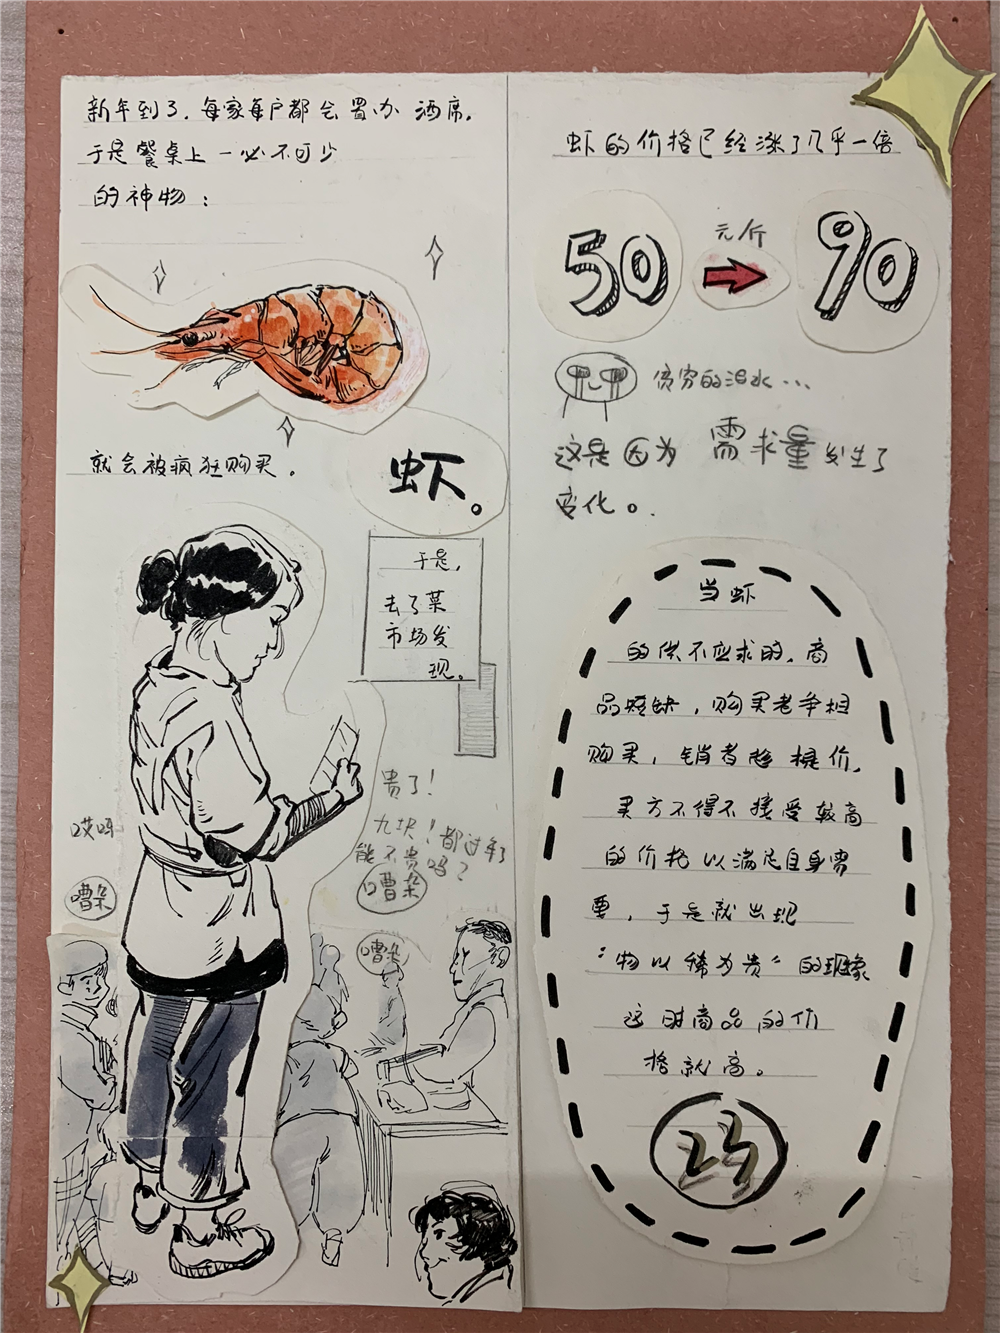 新年到了，每家每户都会置办 酒席，
于是餐桌上一必不可少
的神物：
就会被疯狂购买。
虾。
于是，
去了菜
市场发
现。
贵了！
九块！都过年了
能不贵吗？
嘈杂
哎呀
嘈杂
嘈杂
虾的价格已经涨了几乎一倍
50
元/斤
90
贫穷的泪水...
这是因为 需求量发生了
变化。
当虾
的供不应求时，商
品短缺，购买者争相
购买，销售者趁提价，
买方不得不接受较高
的价格以满足自身需
要，于是就出现
“物以稀为贵”的现象
这时商品的价
格就高。